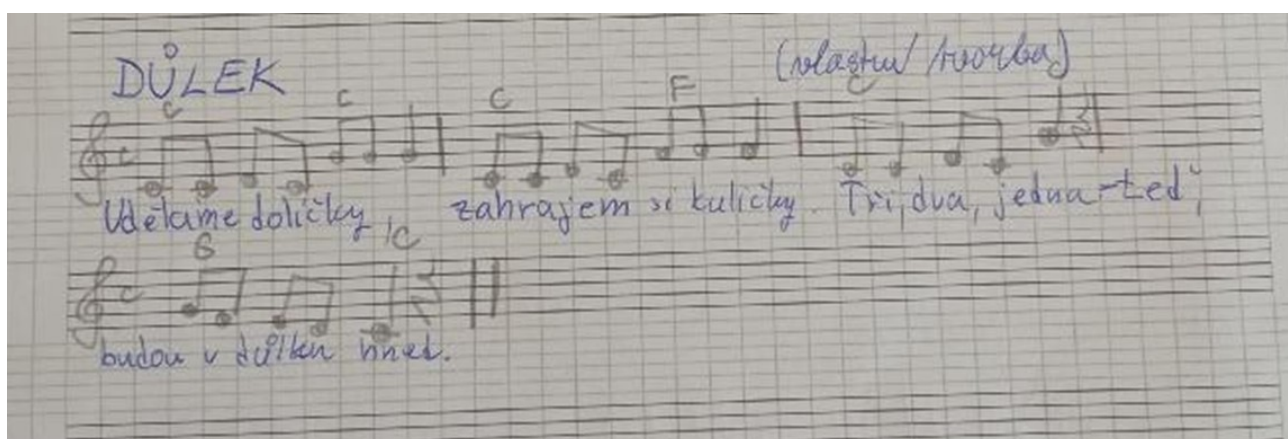 DŮLEK (vlastní tvorba)
C C C F C
Uděláme doličky, zahrajem si kuličky. Tři, dva, jedna-teď,
G C
budou v důlku hned.